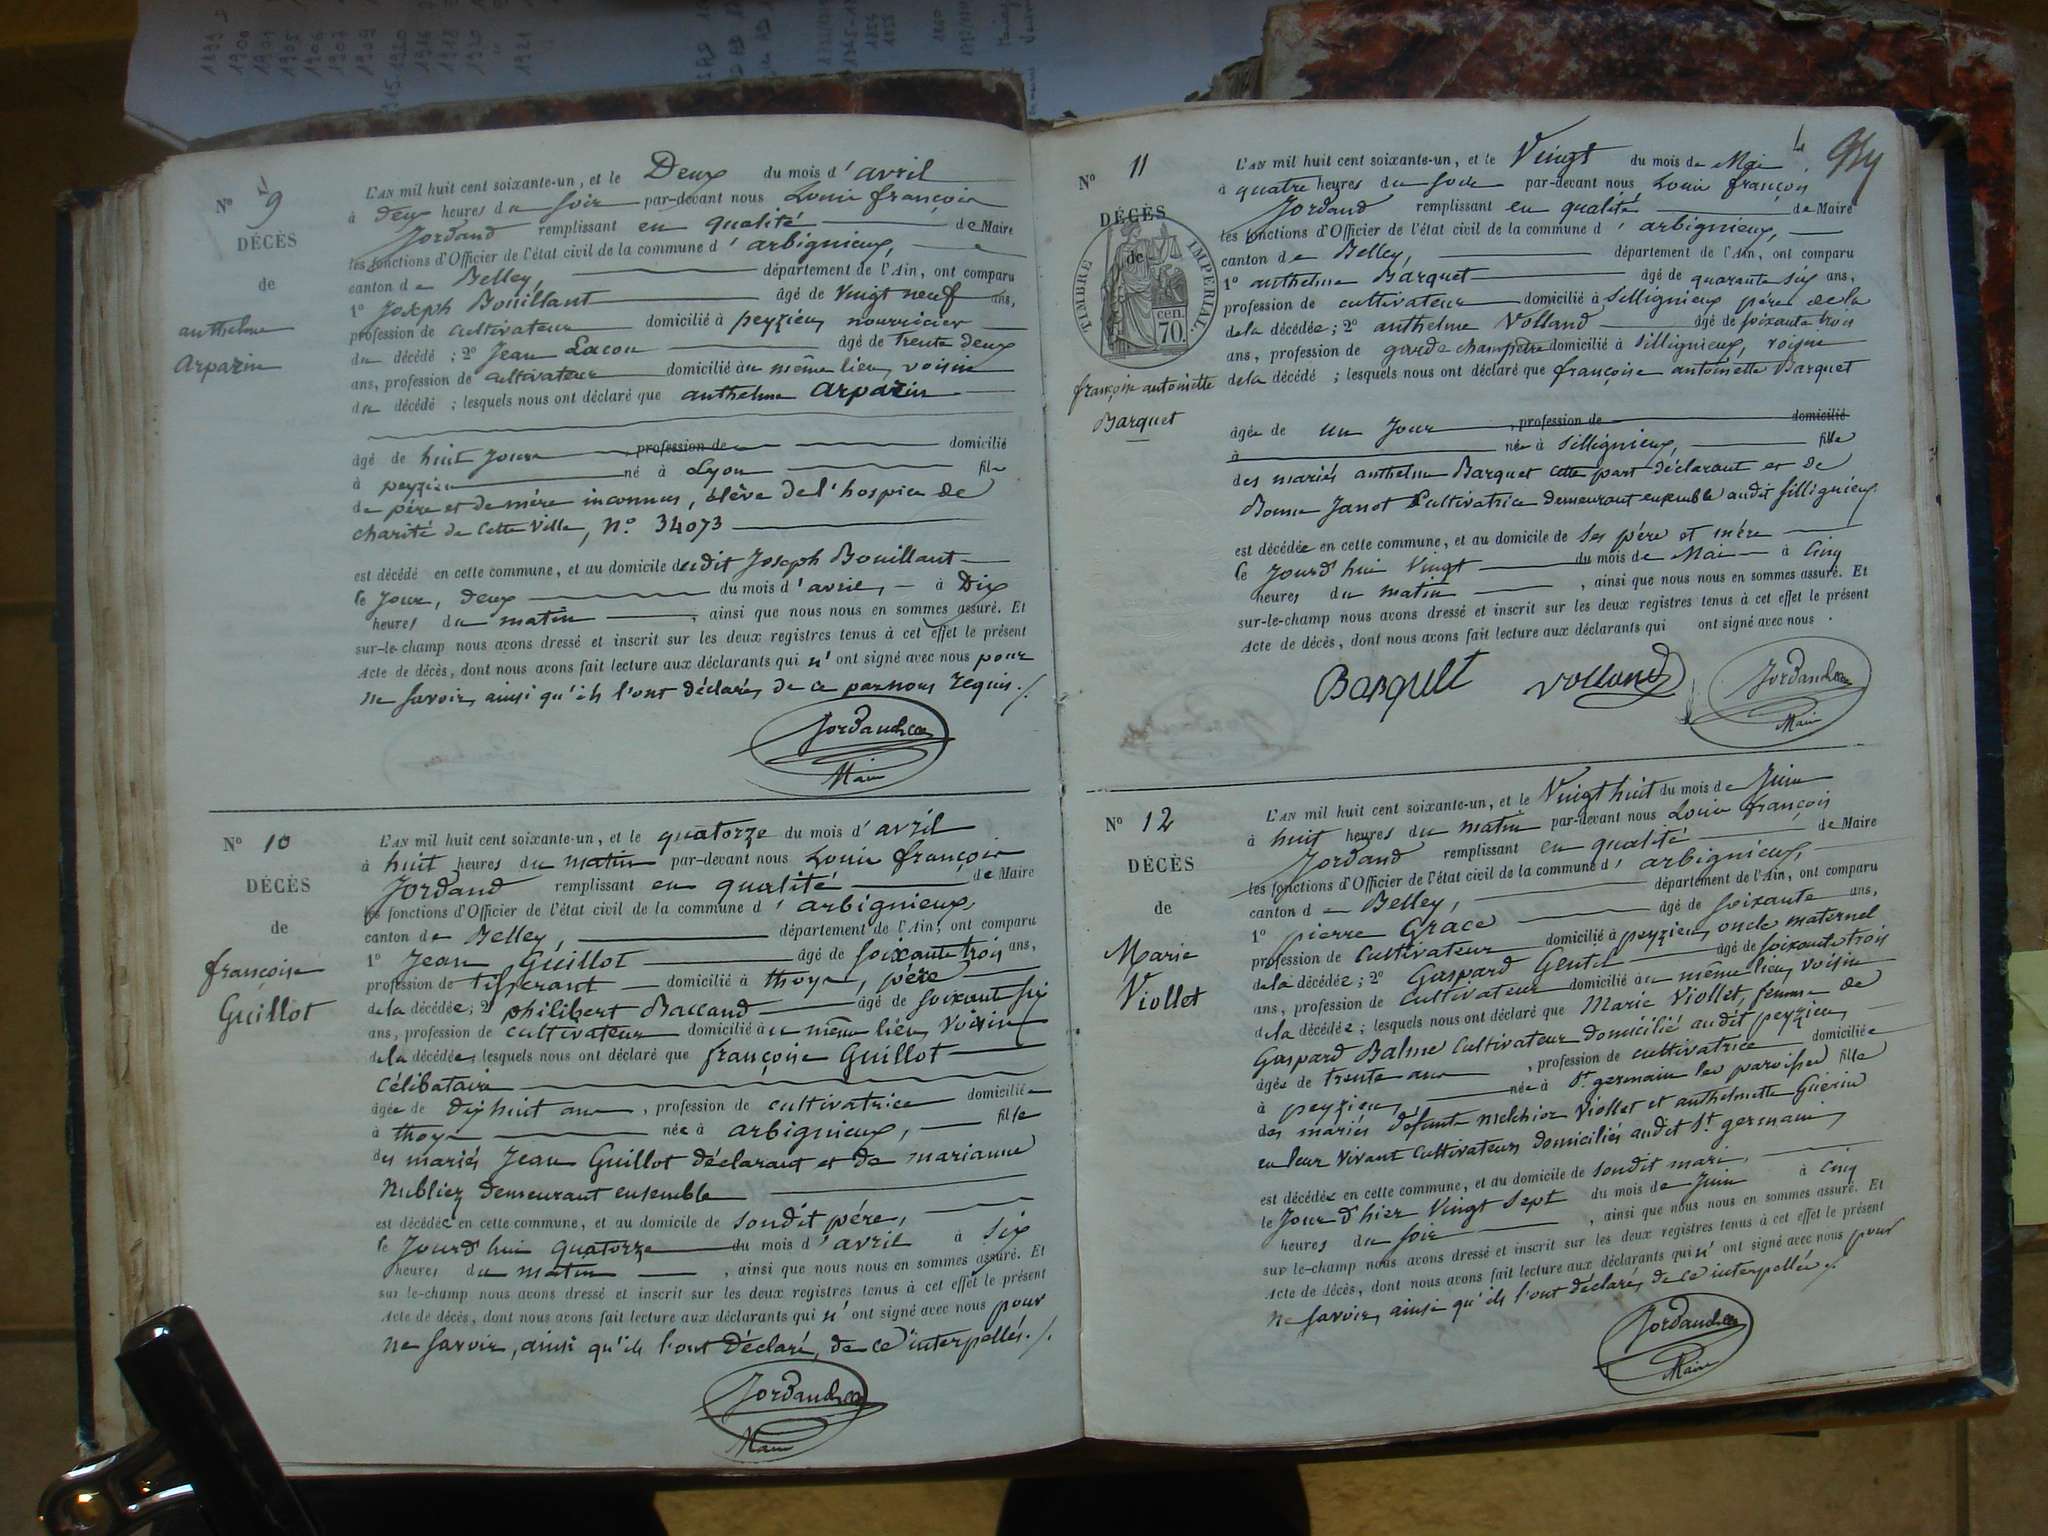 N° 9
DÉCÈS
de
anthelme
Arparin
L'AN mil huit cent soixante-un, et le Deux du mois d'avril
à deux heures du soir par-devant nous Louis françois
Jordand remplissant en qualité de Maire
les fonctions d'Officier de l'état civil de la commune d'arbignieux,
canton de Belley, département de l'Ain, ont comparu
1° Joseph Bouillant âgé de vingt neuf ans,
profession de cultivateur domicilié à peyzieu nourricier
du décédé ; 2° Jean Lacou âgé de trente deux
ans, profession de cultivateur domicilié au même lieu, voisin
du décédé ; lesquels nous ont déclaré que anthelme Arparin
âgé de huit jours, profession de domicilié
à peyzieu né à Lyon fils
de père et de mère inconnus, élève de l'hospice de
charité de cette ville, N° 34073
est décédé en cette commune, et au domicile dudit Joseph Bouillant
le jour, deux du mois d'avril, à Dix
heures du matin, ainsi que nous nous en sommes assuré. Et
sur-le-champ nous avons dressé et inscrit sur les deux registres tenus à cet effet le présent
Acte de décès, dont nous avons fait lecture aux déclarants qui n'ont signé avec nous pour
ne savoir, ainsi qu'ils l'ont déclarés de ce par nous requis ./.
Jordand
Maire
N° 10
DÉCÈS
de
françoise
Guillot
L'AN mil huit cent soixante-un, et le quatorze du mois d'avril
à huit heures du matin par-devant nous Louis françois
Jordand remplissant en qualité de Maire
les fonctions d'Officier de l'état civil de la commune d'arbignieux,
canton de Belley, département de l'Ain, ont comparu
1° Jean Guillot âgé de soixante trois ans,
profession de tisserant domicilié à thoys, père
de la décédée ; 2° philibert Baccand âgé de soixante six
ans, profession de cultivateur domicilié au même lieu, voisin
de la décédée ; lesquels nous ont déclaré que françoise Guillot
célibataire
âgée de dix huit ans, profession de cultivatrice domiciliée
à thoys née à arbignieux, fille
des mariés Jean Guillot déclarant et de marianne
Nubliez demeurant ensemble
est décédée en cette commune, et au domicile de sondit père,
le jourd'hui quatorze du mois d'avril à six
heures du matin, ainsi que nous nous en sommes assuré. Et
sur le-champ nous avons dressé et inscrit sur les deux registres tenus à cet effet le présent
Acte de décès, dont nous avons fait lecture aux déclarants qui n'ont signé avec nous pour
ne savoir, ainsi qu'ils l'ont déclaré, de ce interpellés ./.
Jordand
Maire
N° 11
DÉCÈS
de
TIMBRE IMPÉRIAL
70 cen.
françoise antoinette
Barquet
L'AN mil huit cent soixante-un, et le Vingt du mois de Mai
à quatre heures du soir par-devant nous Louis françois
Jordand remplissant en qualité de Maire
les fonctions d'Officier de l'état civil de la commune d'arbignieux,
canton de Belley, département de l'Ain, ont comparu
1° anthelme Barquet âgé de quarante six ans,
profession de cultivateur domicilié à Sillignieux père de la
de la décédée ; 2° anthelme Volland âgé de soixante trois
ans, profession de garde champêtre domicilié à Sillignieux, voisin
de la décédé ; lesquels nous ont déclaré que françoise antoinette Barquet
âgée de un jour, profession de domicilié
à née à Sillignieux, fille
des mariés anthelme Barquet cette part déclarant et de
Bonne Janot Cultivatrice demeurant ensemble audit Sillignieux
est décédée en cette commune, et au domicile de ses père et mère
le jourd'hui vingt du mois de Mai à cinq
heures du matin, ainsi que nous nous en sommes assuré. Et
sur-le-champ nous avons dressé et inscrit sur les deux registres tenus à cet effet le présent
Acte de décès, dont nous avons fait lecture aux déclarants qui ont signé avec nous.
Barquet Volland Jordand
Maire
N° 12
DÉCÈS
de
Marie
Viollet
L'AN mil huit cent soixante-un, et le Vingt huit du mois de Juin
à huit heures du matin par-devant nous Louis françois
Jordand remplissant en qualité de Maire
les fonctions d'Officier de l'état civil de la commune d'arbignieux,
canton de Belley, département de l'Ain, ont comparu
1° pierre Grace âgé de soixante ans,
profession de cultivateur domicilié à peyzieu, oncle maternel
de la décédée ; 2° Gaspard Gentil âgé de soixante trois
ans, profession de cultivateur domicilié au même lieu, voisin
de la décédée ; lesquels nous ont déclaré que Marie Viollet, femme de
Gaspard Balme cultivateur domicilié audit peyzieu
âgée de trente ans, profession de cultivatrice domiciliée
à peyzieu, née à St germain les paroisses fille
des mariés défunts Melchior Viollet et anthelmette Guérin
en leur vivant cultivateurs domiciliés audit St germain,
est décédée en cette commune, et au domicile de sondit mari,
le jour d'hier vingt sept du mois de juin à cinq
heures du soir, ainsi que nous nous en sommes assuré. Et
sur le-champ nous avons dressé et inscrit sur les deux registres tenus à cet effet le présent
Acte de décès, dont nous avons fait lecture aux déclarants qui n'ont signé avec nous pour
ne savoir, ainsi qu'ils l'ont déclarés de ce interpellés ./.
Jordand
Maire